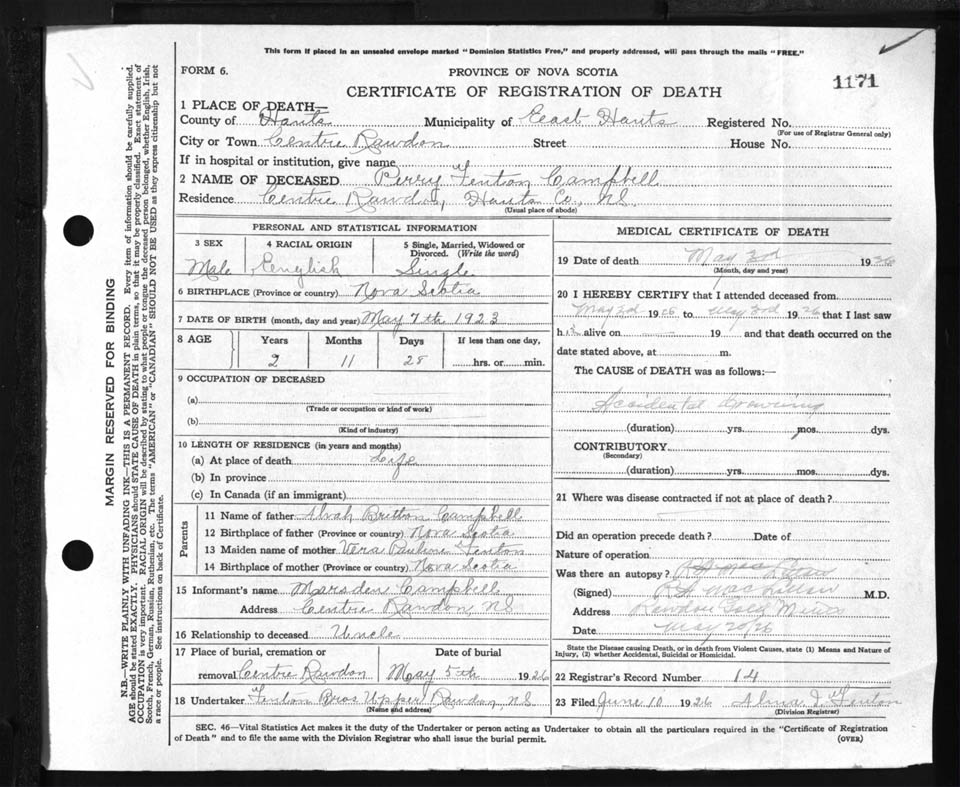 This form if placed in an unsealed envelope marked "Dominion Statistics Free," and properly addressed, will pass through the mails "FREE."
FORM 6.
PROVINCE OF NOVA SCOTIA
1171
CERTIFICATE OF REGISTRATION OF DEATH
1 PLACE OF DEATH—
County of Hants Municipality of East Hants Registered No.
(For use of Registrar General only)
City or Town Centre Rawdon Street House No.
If in hospital or institution, give name
2 NAME OF DECEASED Perry Fenton Campbell
Residence Centre Rawdon, Hants Co., N.S.
(Usual place of abode)
PERSONAL AND STATISTICAL INFORMATION
3 SEX 4 RACIAL ORIGIN 5 Single, Married, Widowed or Divorced. (Write the word)
Male English Single
6 BIRTHPLACE (Province or country) Nova Scotia
7 DATE OF BIRTH (month, day and year) May 7th 1923
8 AGE Years Months Days If less than one day,
2 11 28 hrs. or min.
9 OCCUPATION OF DECEASED
(a)
(Trade or occupation or kind of work)
(b)
(Kind of industry)
10 LENGTH OF RESIDENCE (in years and months)
(a) At place of death Life
(b) In province
(c) In Canada (if an immigrant)
Parents
11 Name of father Alvah Britton Campbell
12 Birthplace of father (Province or country) Nova Scotia
13 Maiden name of mother Vera Pauline Fenton
14 Birthplace of mother (Province or country) Nova Scotia
15 Informant's name Marsden Campbell
Address Centre Rawdon NS
16 Relationship to deceased Uncle
17 Place of burial, cremation or Date of burial
removal Centre Rawdon May 5th 1926
18 Undertaker Fenton Bros Upper Rawdon, N.S.
(Name and address)
MEDICAL CERTIFICATE OF DEATH
19 Date of death May 3d 1926
(Month, day and year)
20 I HEREBY CERTIFY that I attended deceased from
May 3d 1926 to May 3rd 1926 that I last saw
h alive on 19 and that death occurred on the
date stated above, at m.
The CAUSE of DEATH was as follows:—
Accidental drowning
(duration) yrs. mos. dys.
CONTRIBUTORY
(Secondary)
(duration) yrs. mos. dys.
21 Where was disease contracted if not at place of death?
Did an operation precede death? Date of
Nature of operation
Was there an autopsy?
(Signed) M.D.
Address Rawdon Gold Mines
Date May 20/26
State the Disease causing Death, or in death from Violent Causes, state (1) Means and Nature of
Injury, (2) whether Accidental, Suicidal or Homicidal.
22 Registrar's Record Number 14
23 Filed June 10 1926 Alma I. Fenton
(Division Registrar)
SEC. 46—Vital Statistics Act makes it the duty of the Undertaker or person acting as Undertaker to obtain all the particulars required in the "Certificate of Registration
of Death" and to file the same with the Division Registrar who shall issue the burial permit.
(OVER)
MARGIN RESERVED FOR BINDING
N.B.—WRITE PLAINLY WITH UNFADING INK—THIS IS A PERMANENT RECORD. Every item of information should be carefully supplied.
AGE should be stated EXACTLY. PHYSICIANS should STATE CAUSE OF DEATH in plain terms, so that it may be properly classified. Exact statement of
OCCUPATION is very important. RACIAL ORIGIN will be described by stating to what people, or tongue the deceased person belonged, whether English, Irish,
Scotch, French, German, Russian, Ruthenian, etc. The terms "AMERICAN" or "CANADIAN" SHOULD NOT BE USED as they express citizenship but not
a race or people. See instructions on back of Certificate.